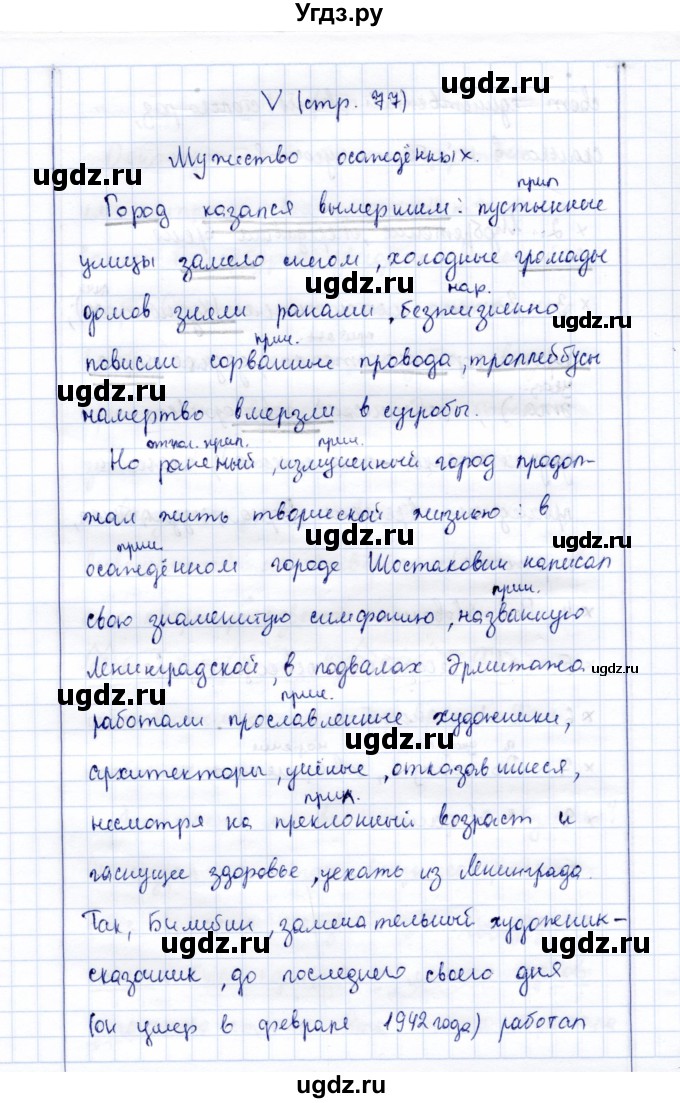 Угдз.ру
V (стр. 77)
ugdz.ru ugdz.ru
Мужество осаждённых.
прил
Город казался вымершим: пустынные
улицы замело снегом, холодные громады
ugdz.ru
нар.
домов зияли ранами, безжизненно
ugdz.ru
прич.
повисли сорванные провода, троллейбусы
ugdz.ru
намертво вмерзли в сугробы.
ugdz.ru
отгл. прил. прич.
Но раненый, измученный город продол-
жал жить творческой жизнью: в
ugdz.ru ugdz.ru
прич.
осаждённом городе Шостакович написал
прич.
свою знаменитую симфонию, названную
Ленинградской, в подвалах Эрмитажа
ugdz.ru
ugdz.ru
прич.
работали прославленные художники,
ugdz.ru
архитекторы, учёные, отказавшиеся,
прил.
несмотря на преклонный возраст и
ugdz.ru
гаснущее здоровье, уехать из Ленинграда.
Так, Билибин, замечательный художник-
ugdz.ru ugdz.ru
сказочник, до последнего своего дня
(он умер в феврале 1942 года) работал
ugdz.ru